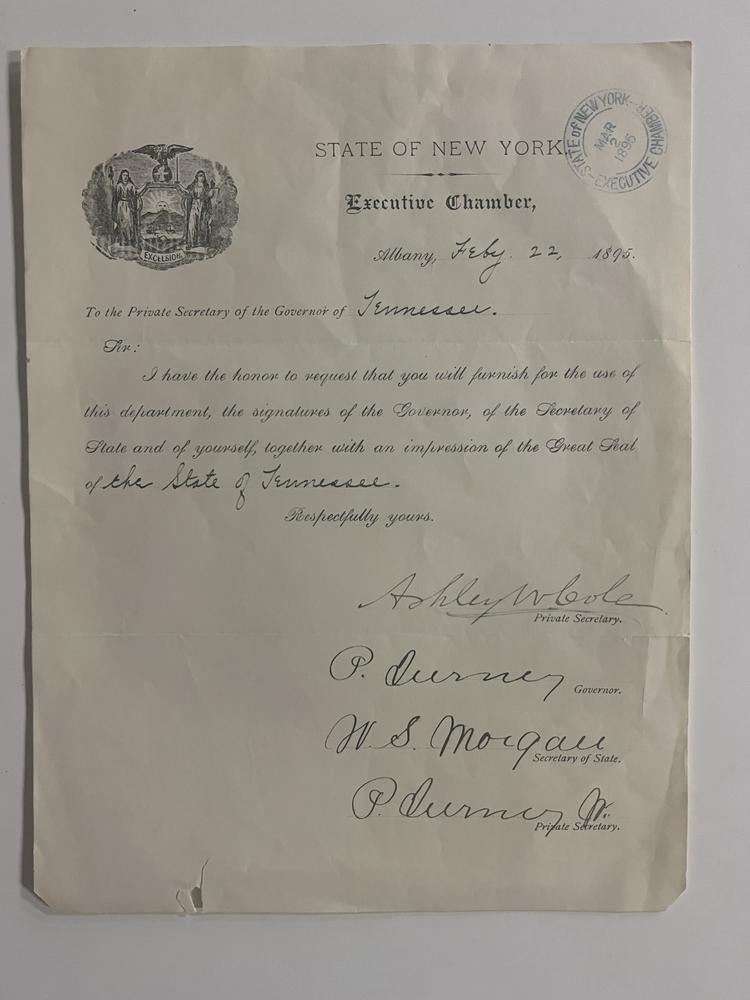 STATE OF NEW YORK
Executive Chamber,
STATE of NEW YORK - EXECUTIVE CHAMBER -
MAR
2
1895
EXCELSIOR
Albany, Feby. 22, 1895.
To the Private Secretary of the Governor of Tennessee.
Sir:
I have the honor to request that you will furnish for the use of
this department, the signatures of the Governor, of the Secretary of
State and of yourself, together with an impression of the Great Seal
of the State of Tennessee.
Respectfully yours.
Ashley W. Cole
Private Secretary.
P. Turney
Governor.
W. S. Morgan
Secretary of State.
P. Turney Jr.
Private Secretary.